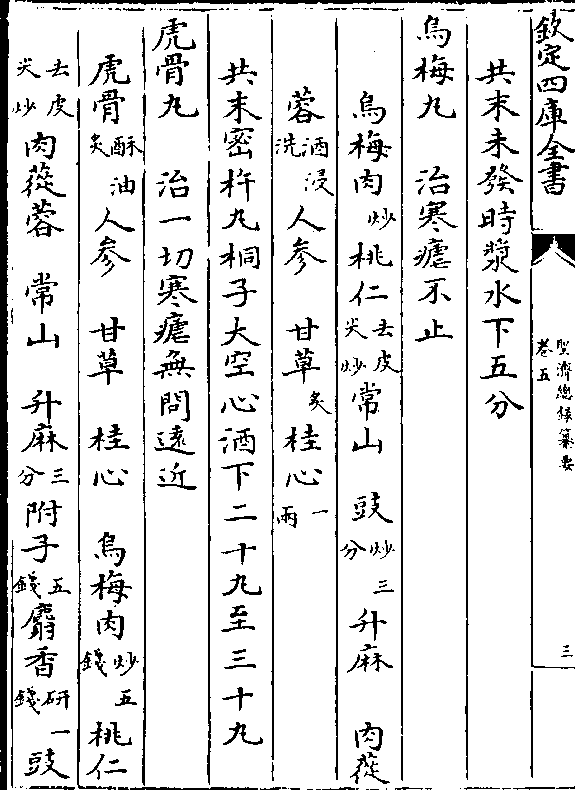 欽定四庫全書
聖濟總録纂要
卷五
三
共末未發時漿水下五分
烏梅丸　治寒瘧不止
烏梅肉炒桃仁去皮尖炒常山　豉炒三分升麻　肉蓯
蓉酒浸洗人參　甘草炙桂心一兩
共末密杵丸桐子大空心酒下二十九至三十九
虎骨丸　治一切寒瘧無問遠近
虎骨酥油炙人參　甘草　桂心　烏梅肉炒五錢桃仁
去皮尖炒肉蓯蓉　常山　升麻三分附子五錢麝香研一錢豉